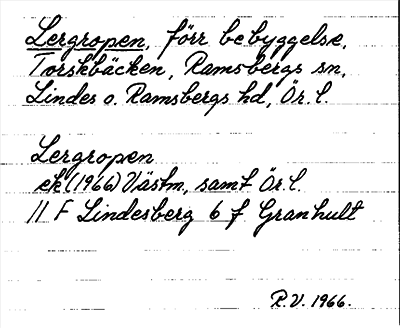 Lergropen, förr bebyggelse,
Torskbäcken, Ramsbergs sn,
Lindes o. Ramsbergs hd, Ör. l.
Lergropen
ek (1966) Västm, samt Ör. l.
11 F Lindesberg 6 f Granhult
R.V. 1966.